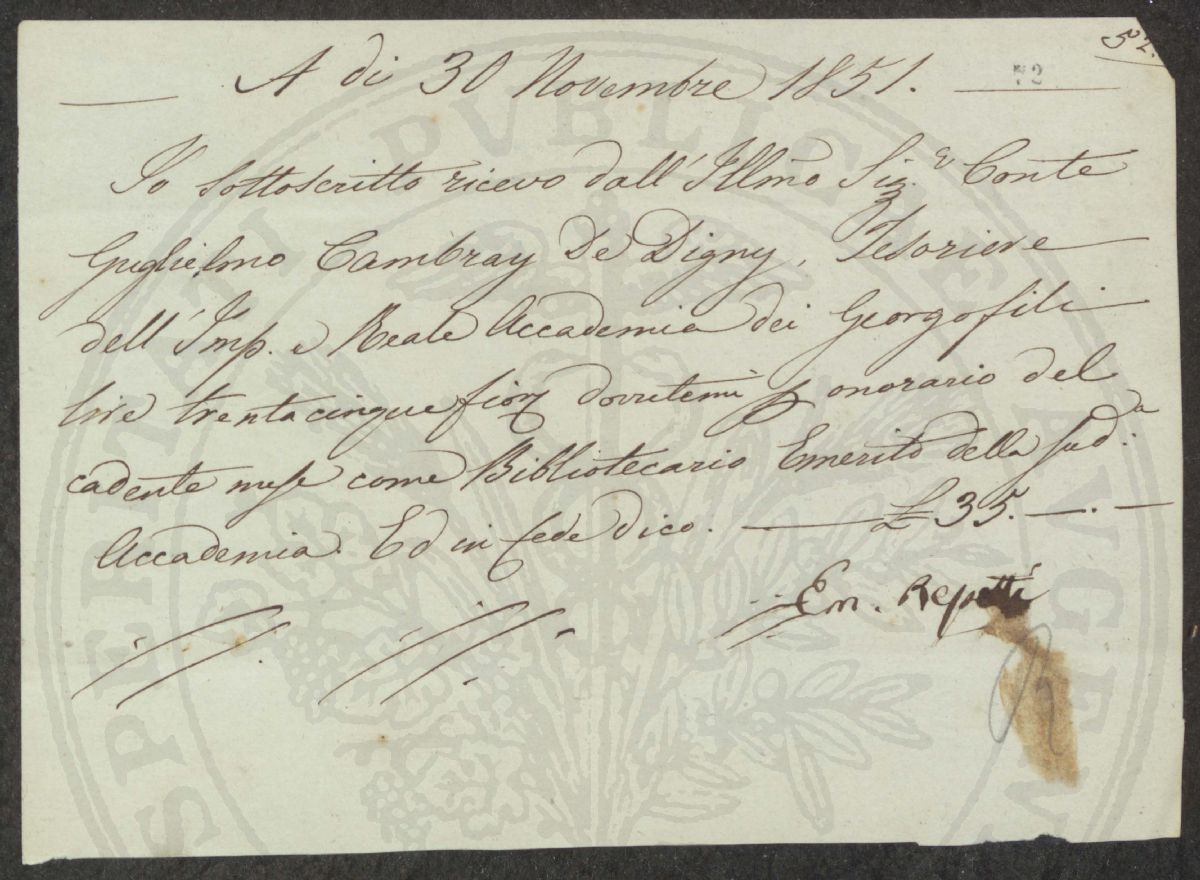 52.
72
A di 30 Novembre 1851.
Io Sottoscritto ricevo dall'Illmo Sig.r Conte
Guglielmo Cambray De Digny, Tesoriere
dell'Imp. e Reale Accademia dei Georgofili
lire trentacinque fior dovutemi p onorario del
cadente mese come Bibliotecario Emerito della sud.a
Accademia. Ed in fede dico. — £ 35. —
Em. Repetti
PROSPERITATI PVBLICAE AVGENDAE